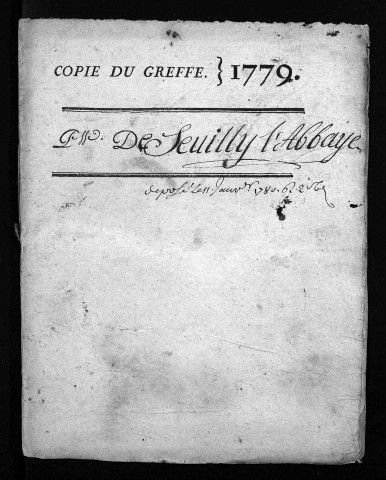 COPIE DU GREFFE. } 1779.
De Seuilly l'Abbaye
deposé le 11 Janvr. 1780.